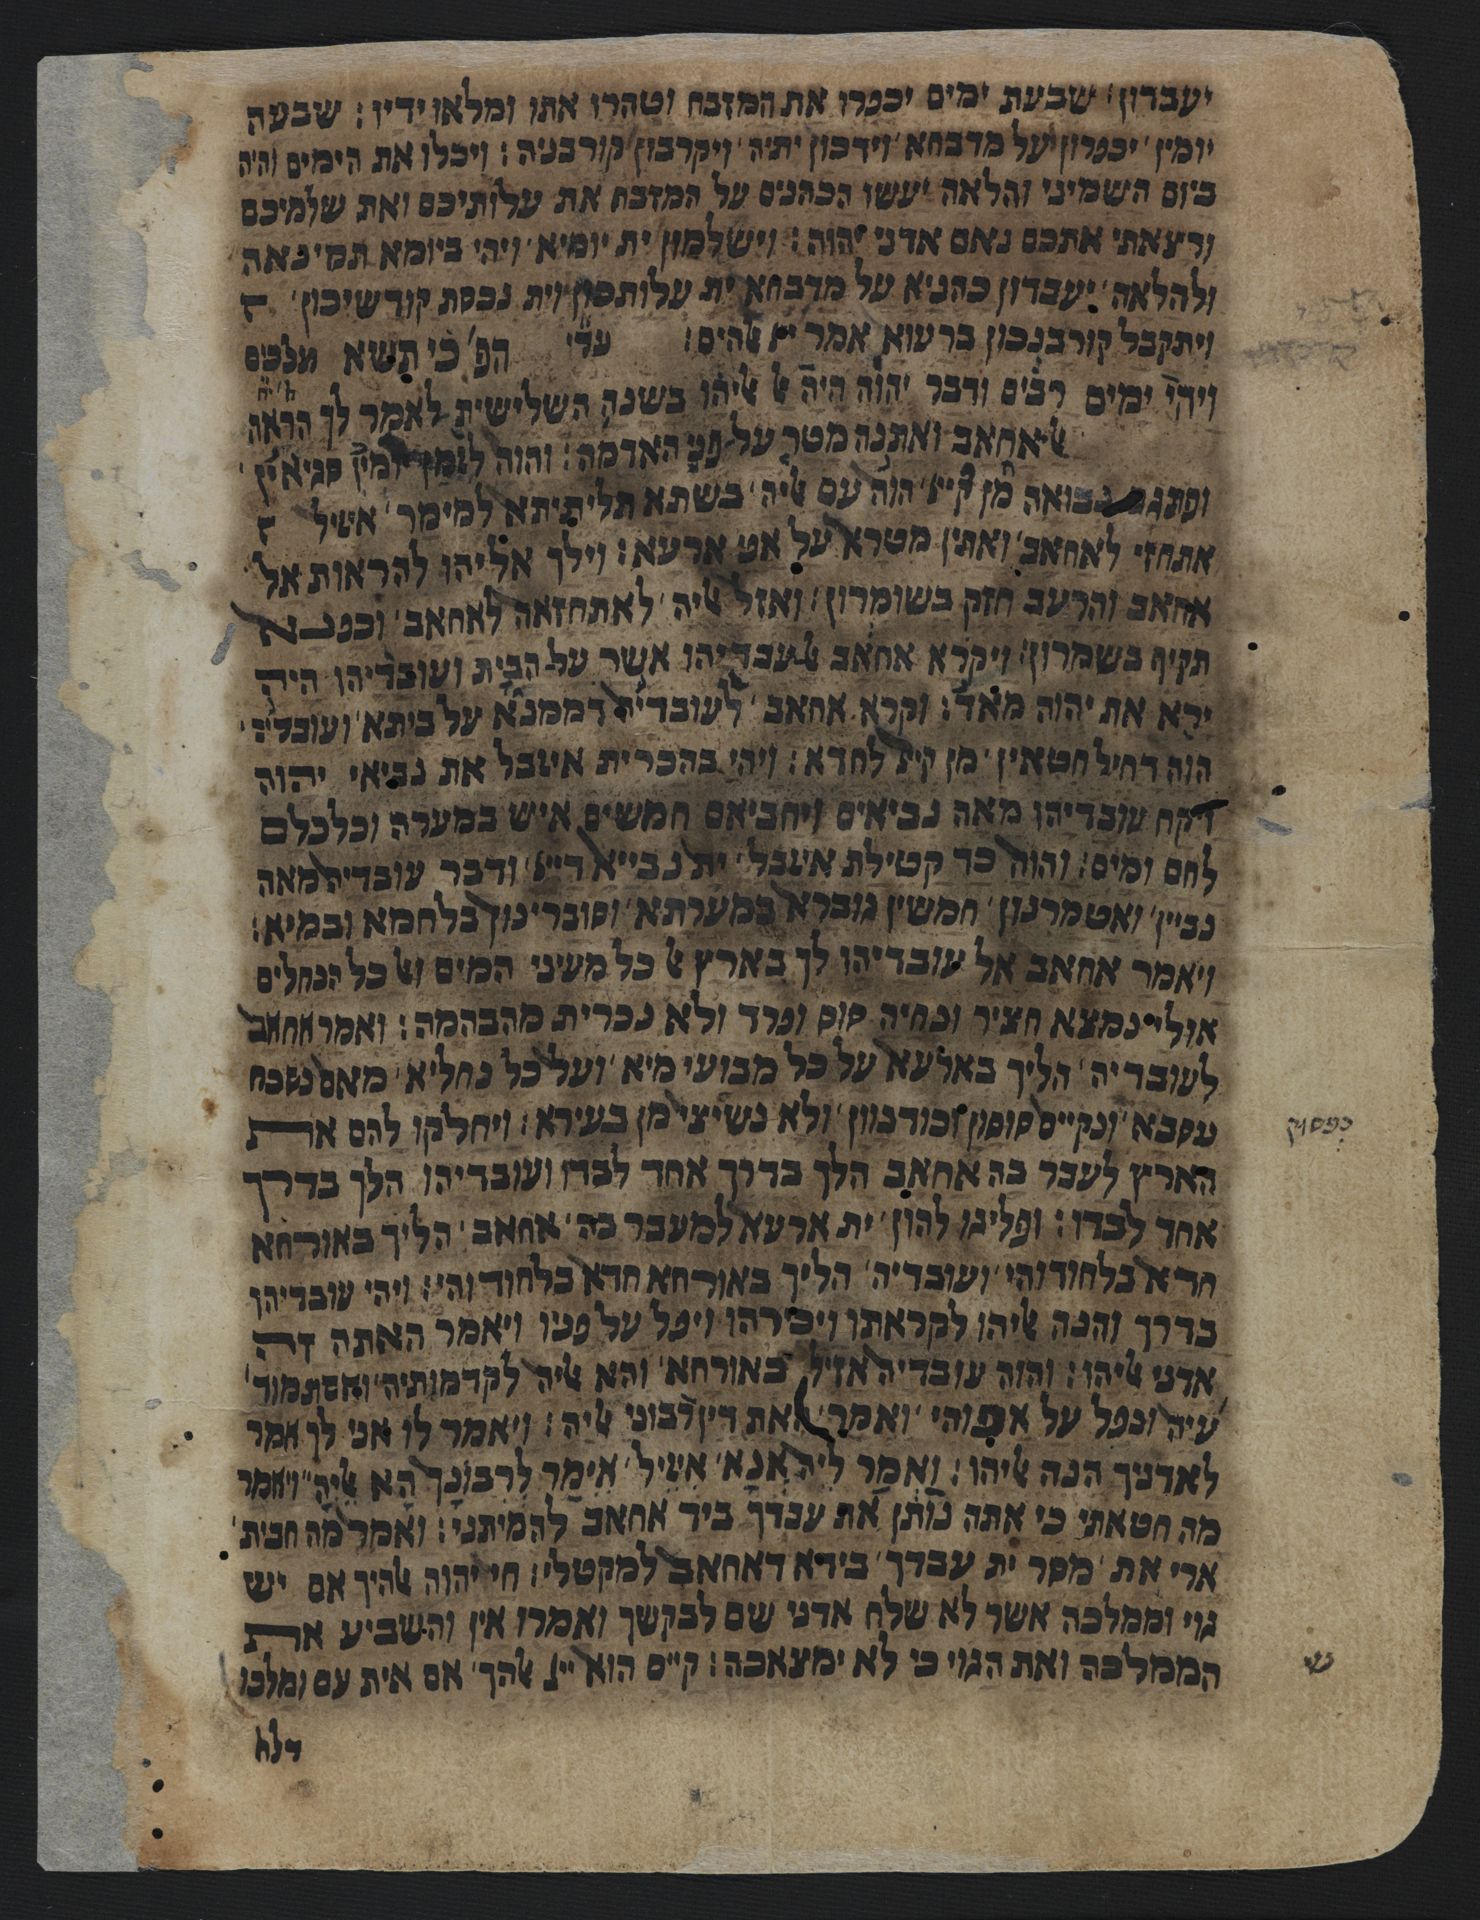 יעבדון׃ שבעת ימים יכפרו את המזבח וטהרו אתו ומלאו ידיו׃ שבעה
יומין׳ יכפרון על מדבחא׳ וידכון יתיה׳ ויקרבון קורבניה׃ ויכלו את הימים והיה
ביום השמיני והלאה יעשו הכהנים על המזבח את עלותיכם ואת שלמיכם
ורצאתי אתכם נאם אדני יהוה׃ וישלמון ית יומיא׳ ויהי ביומא תמינאה
ולהלאה׳ יעבדון כהניא על מדבחא ית עלותכון וית נכסת קודשיכון׳
ויתקבל קורבנכון ברעוא אמר ייי אלהים׃ הפ׳ כי תשא מלכים
ויהי ימים רבים ודבר יהוה היה אל אליהו בשנה השלישית לאמר לך הראה
אל אחאב ואתנה מטר על פני האדמה׃ והוה לזמן יומין סגיאין
ופתגם נבואה מן קיי׳ הוה עם אליה׳ בשתא תליתיתא למימר׳ איזיל
אתחזי לאחאב׳ ואתין מטרא על אפי ארעא׃ וילך אליהו להראות אל
אחאב והרעב חזק בשומרון׃ ואזל אליה׳ לאתחזאה לאחאב׳ וכפנא
תקיף בשמרון׃ ויקרא אחאב אל עבדיהו אשר על הבית ועובדיהו היה
ירא את יהוה מאד׃ וקרא אחאב׳ לעובדיה דממנא על ביתא׳ ועובדיה׳
הוה דחיל חטאין׳ מן קייי לחדא׃ ויהי בהכרית איזבל את נביאי יהוה
ויקח עובדיהו מאה נביאים ויחביאם חמשים איש במערה וכלכלם
לחם ומים׃ והוה כד קטילת איזבל׳ ית נבייא דייי׳ ודבר עובדיה מאה
נביין׳ ואטמרנון׳ חמשין גוברא במערתא׳ וסוברינון בלחמא ובמיא׃
ויאמר אחאב אל עובדיהו לך בארץ אל כל מעיני המים ואל כל הנחלים
אולי נמצא חציר ונחיה סוס ופרד ולא נכרית מהבהמה׃ ואמר אחאב
לעובדיה׳ הליך בארעא על כל מבועי מיא׳ ועל כל נחליא׳ מאם נשכח
עסבא׳ ונקיים סוסון וכודנוון׳ ולא נשיצי מן בעירא׃ ויחלקו להם את
הארץ לעבר בה אחאב הלך בדרך אחד לבדו ועובדיהו הלך בדרך
אחד לבדו׃ ופליגו להון׳ ית ארעא למעבר בה׳ אחאב׳ הליך באורחא
חדא בלחודוהי׳ ועובדיה׳ הליך באורחא חדא בלחודוהי׃ ויהי עובדיהו
בדרך והנה אליהו לקראתו ויכירהו ויפל על פניו ויאמר האתה זה
אדני אליהו׃ והוה עובדיה אזיל באורחא׳ והא אליה לקדמותיה׳ ואסתמוד
עיה ונפל על אפוהי׳ ואמר׳ האת דין רבוני אליה׃ ויאמר לו אני לך אמר
לאדניך הנה אליהו׃ ואמר ליה אנא׳ איזיל׳ אימר לרבונך הא אליה׃ ויאמר
מה חטאתי כי אתה נותן את עבדך ביד אחאב להמיתני׃ ואמר מה חבית׳
ארי את׳ מסר ית עבדך׳ בידא דאחאב למקטלי׃ חי יהוה אלהיך אם יש
גוי וממלכה אשר לא שלח אדני שם לבקשך ואמרו אין והשביע את
הממלכה ואת הגוי כי לא ימצאכה׃ קיים הוא ייי אלהך׳ אם אית עם ומלכו
דלא